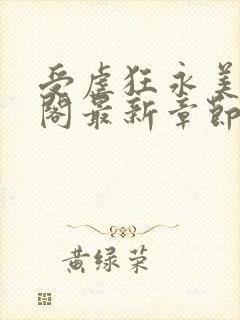 受虐狂永美
阁最新章节
黄绿荣